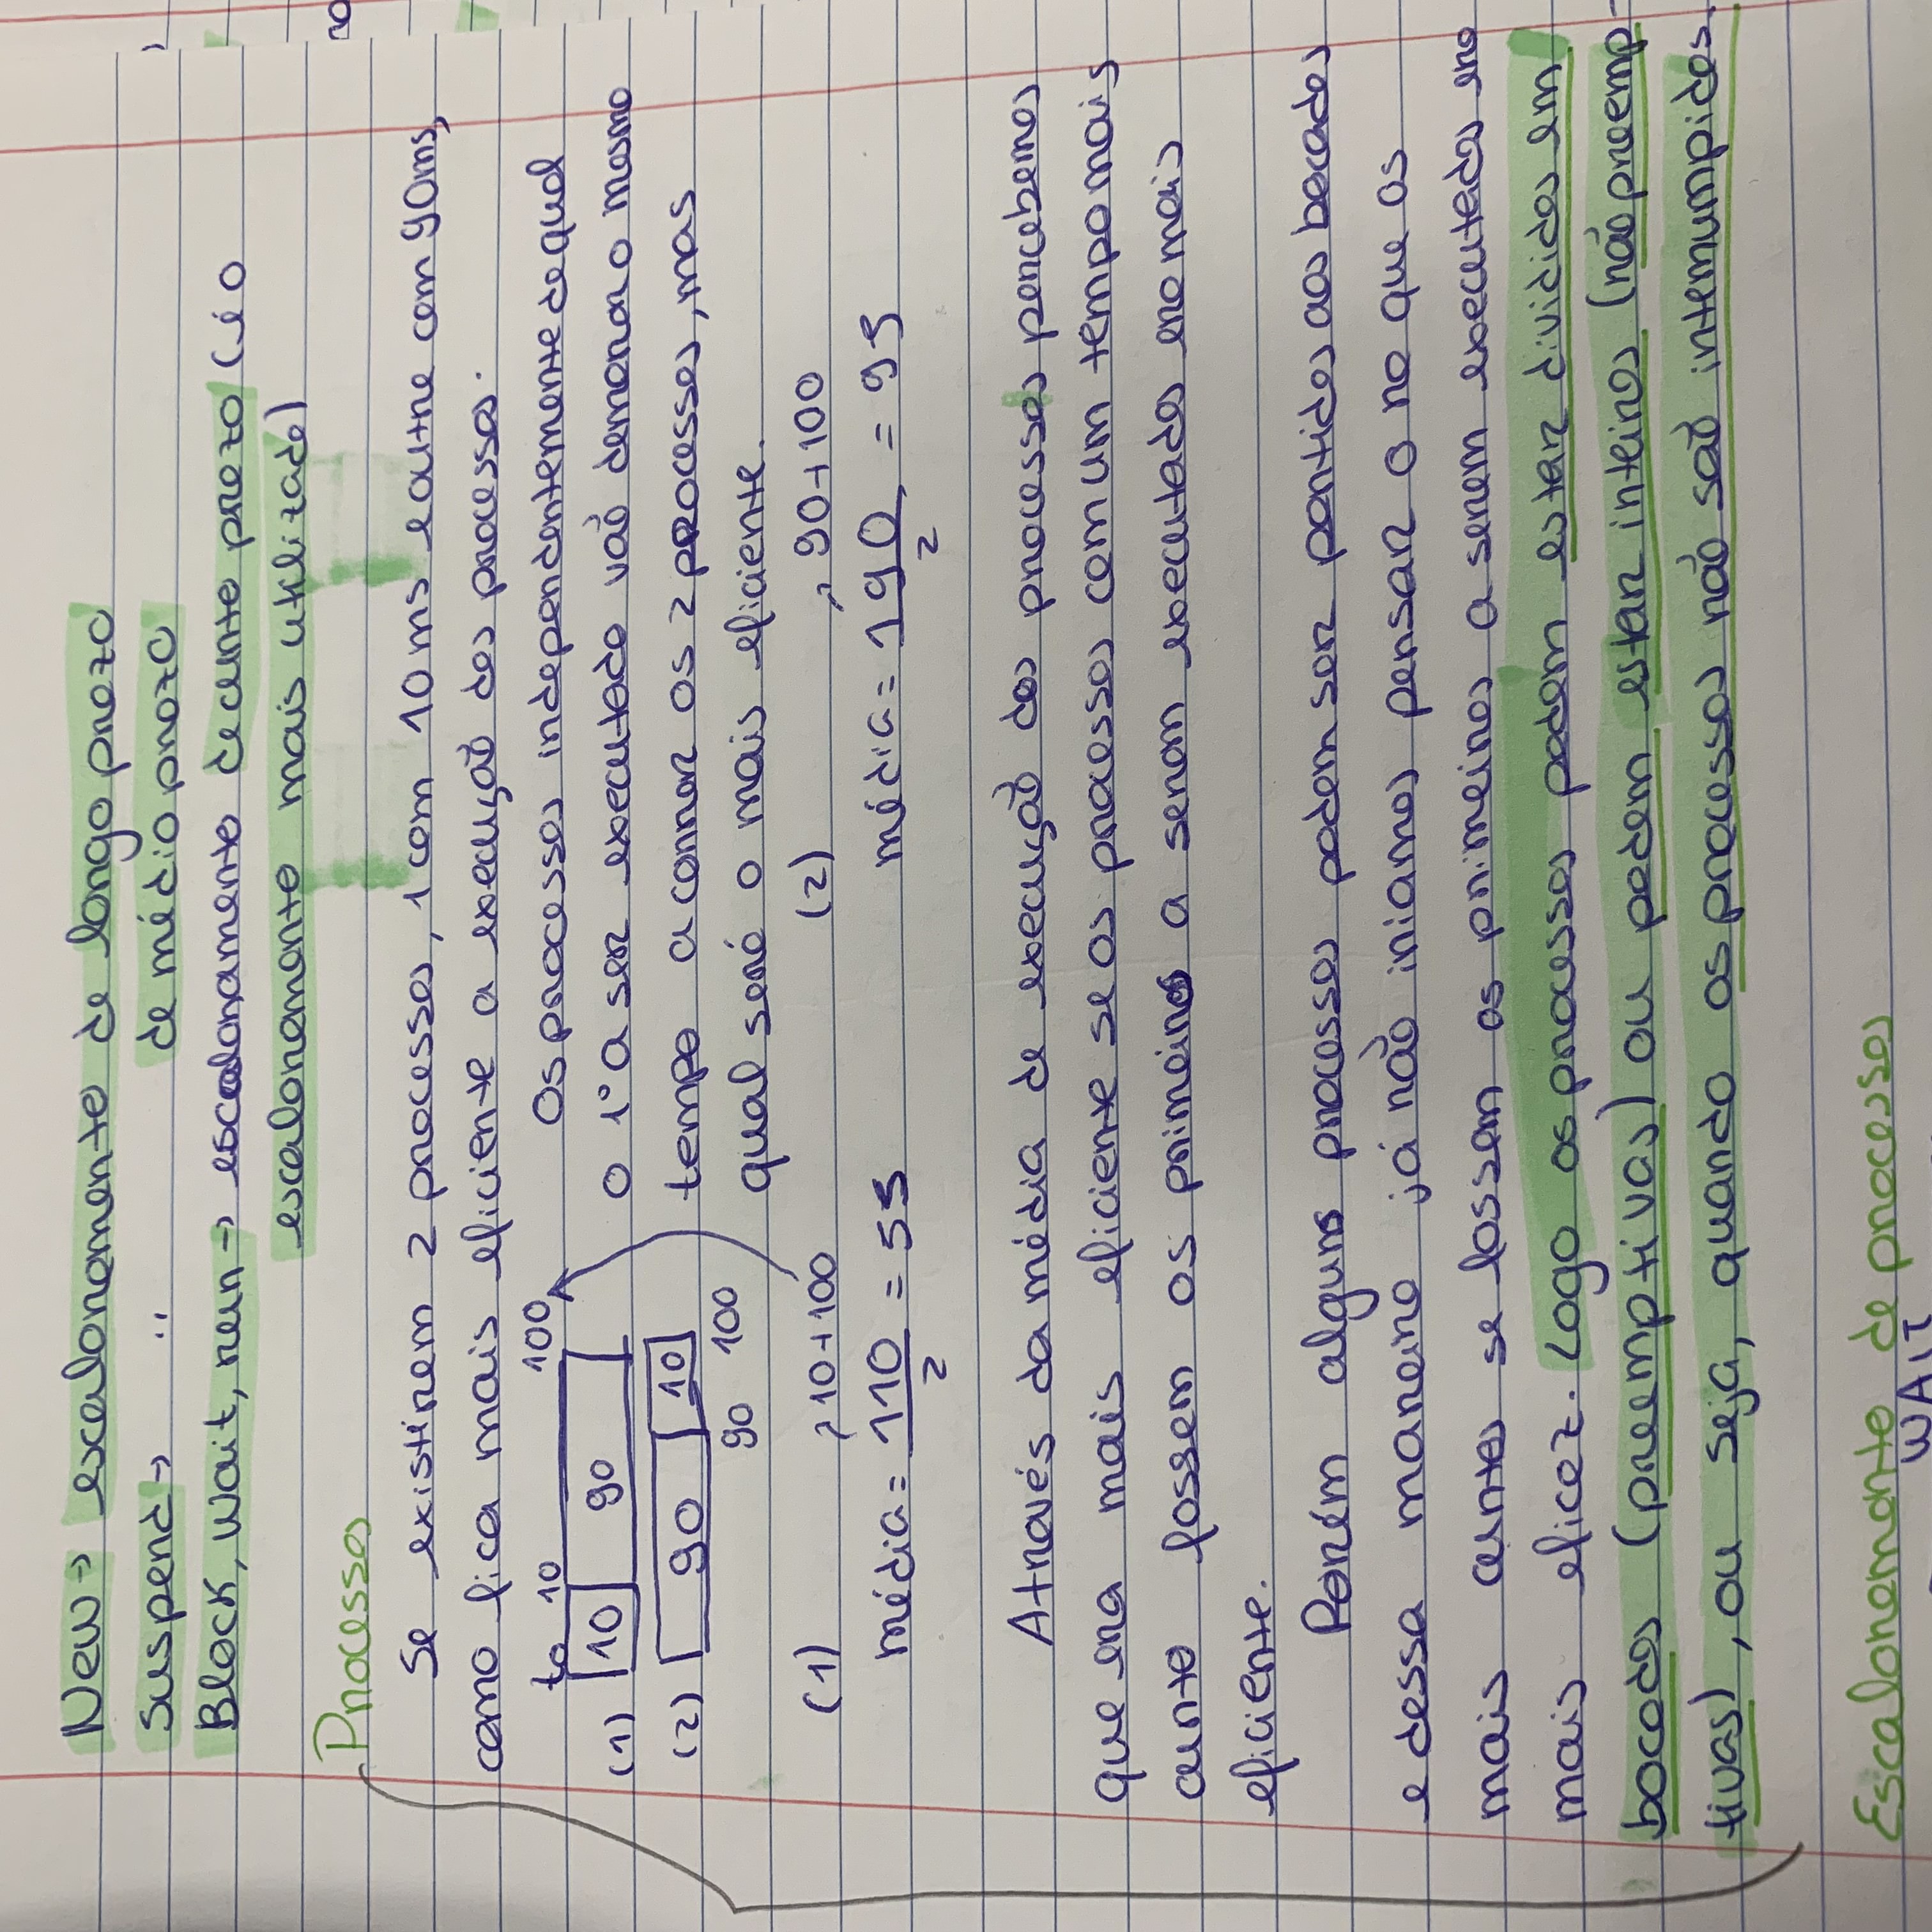 New → escalonamento de longo prazo
Suspend → " de médio prazo
Block, Wait, run → escalonamento de curto prazo (é o
escalonamento mais utilizado)
Processos
Se existirem 2 processos, 1 com 10 ms e outro com 90ms,
como fica mais eficiente a execução dos processos.
to 10 100
(1) 10 90
(2) 90 10
90 100
Os processos independentemente de qual
o 1º a ser executado vão demorar o mesmo
tempo a correr os 2 processos, mas
qual será o mais eficiente.
(1) → 10+100
média = 110/2 = 55
(2) → 90+100
média = 190/2 = 95
Através da média de execução dos processos percebemos
que era mais eficiente se os processos com um tempo mais
curto fossem os primeiros a serem executados era mais
eficiente.
Porém alguns processos podem ser partidos aos bocados
e dessa maneira já não iriamos pensar o no que os
mais curtos se fossem os primeiros a serem executados era
mais eficaz. Logo os processos podem estar divididos em
bocados (preemptivas) ou podem estar inteiros (não preemp-
tivas), ou seja, quando os processos não são interrumpidos.
Escalonamento de processos
WAIT